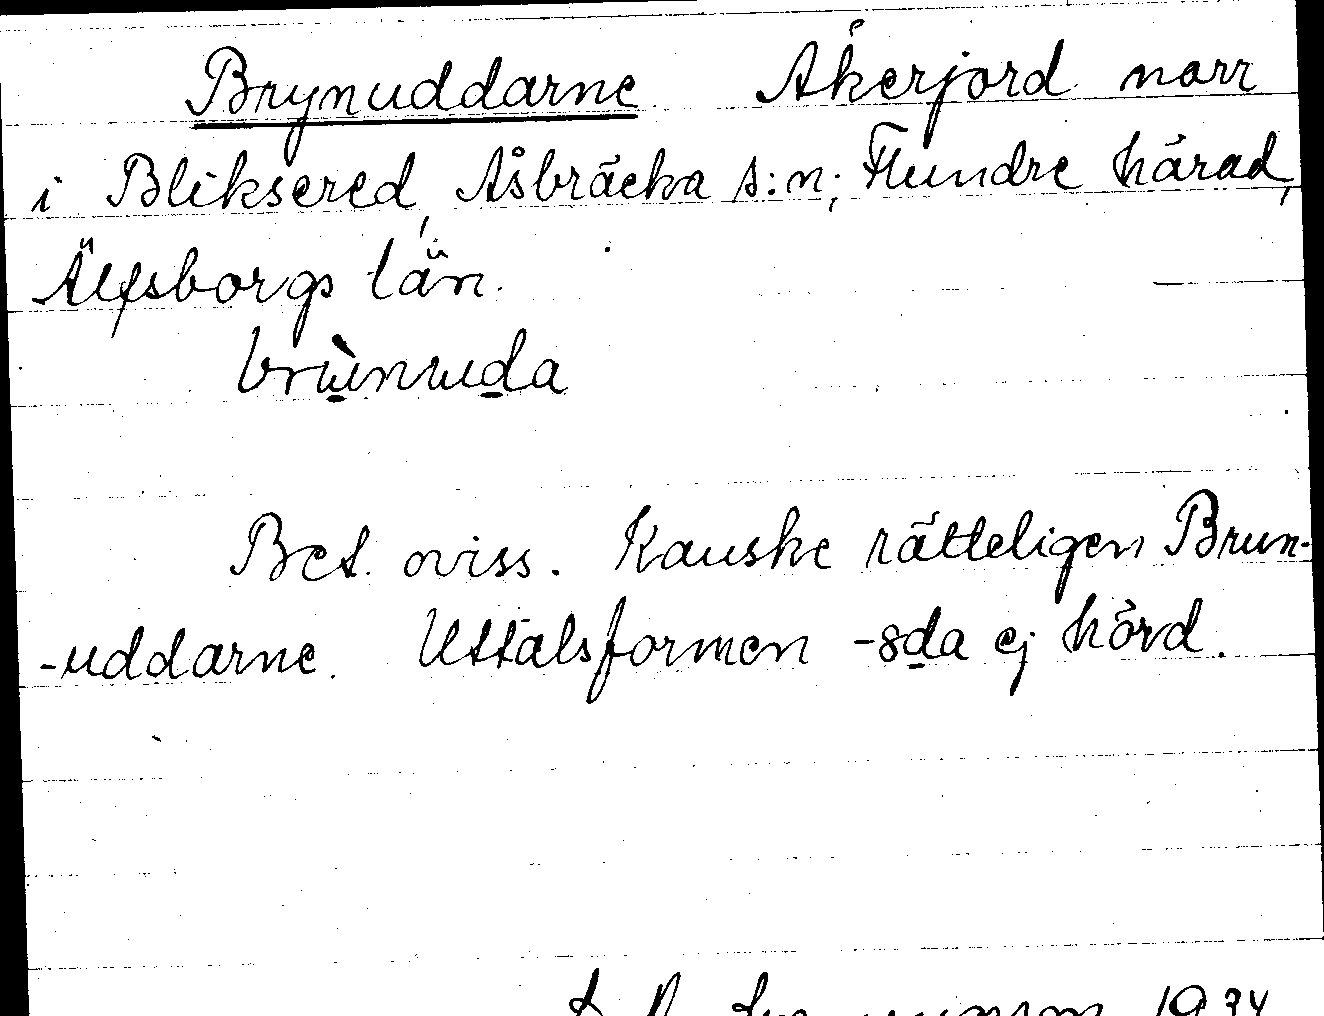 Brynuddarne Åkerjord norr
i Bliksered, Åsbräcka s:n; Flundre härad,
Älfsborgs län.
brùnuda
Bet. oviss. Kanske rätteligen Brun-
-uddarne. Uttalsformen -sda ej hörd.
1934